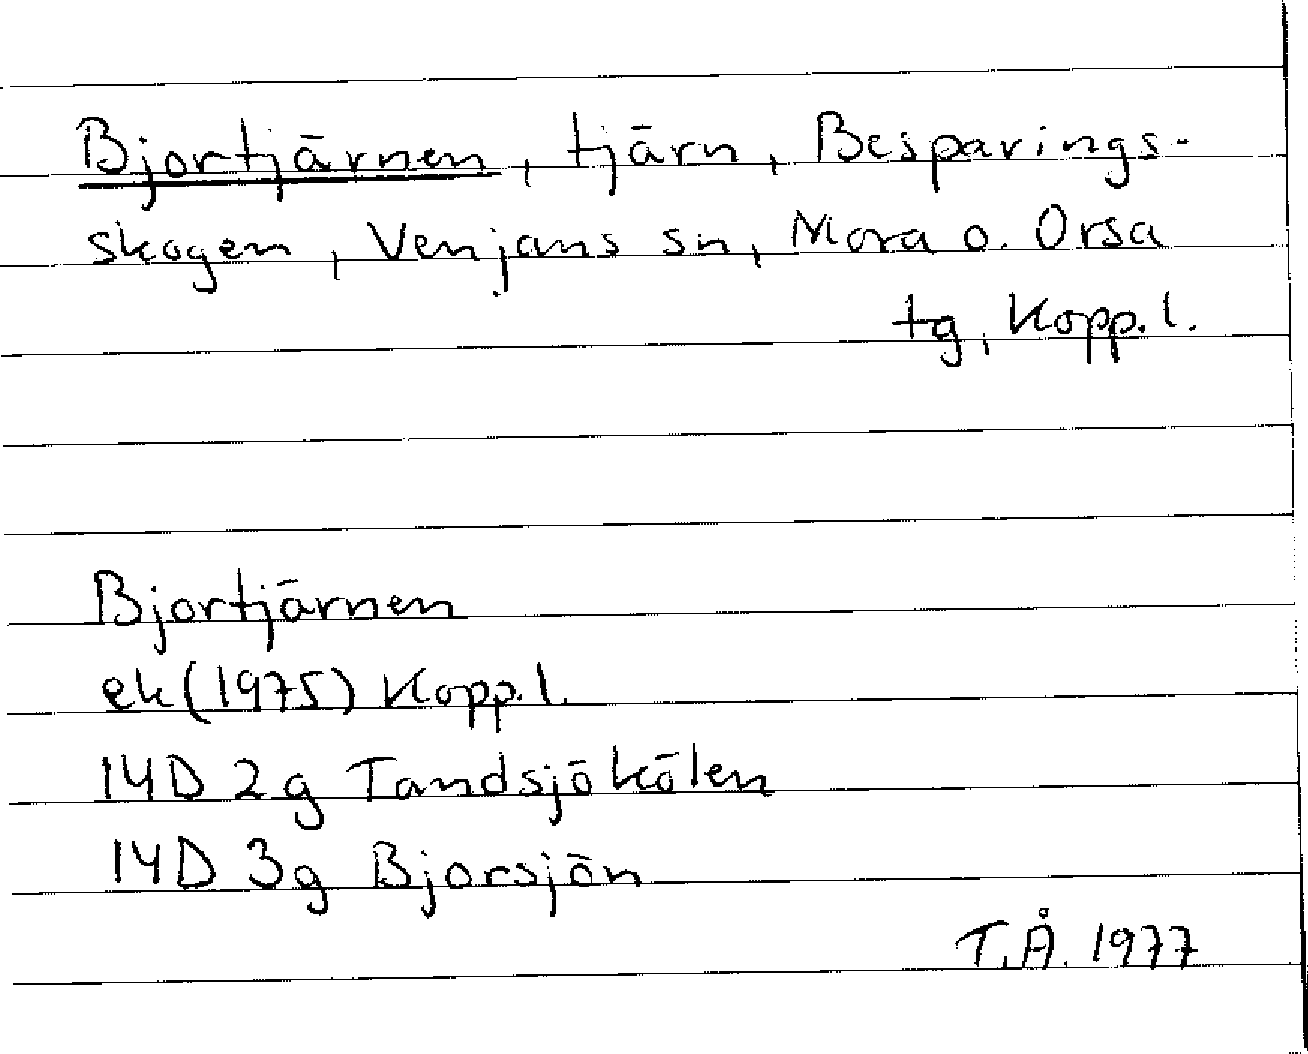 Bjortjärnen, tjärn, Besparings-
skogen, Venjans sn, Mora o. Orsa
tg, Kopp.l.
Bjortjärnen
ek (1975) Kopp.l.
14D 2g Tandsjökölen
14D 3g Bjorsjön
T.Å. 1977